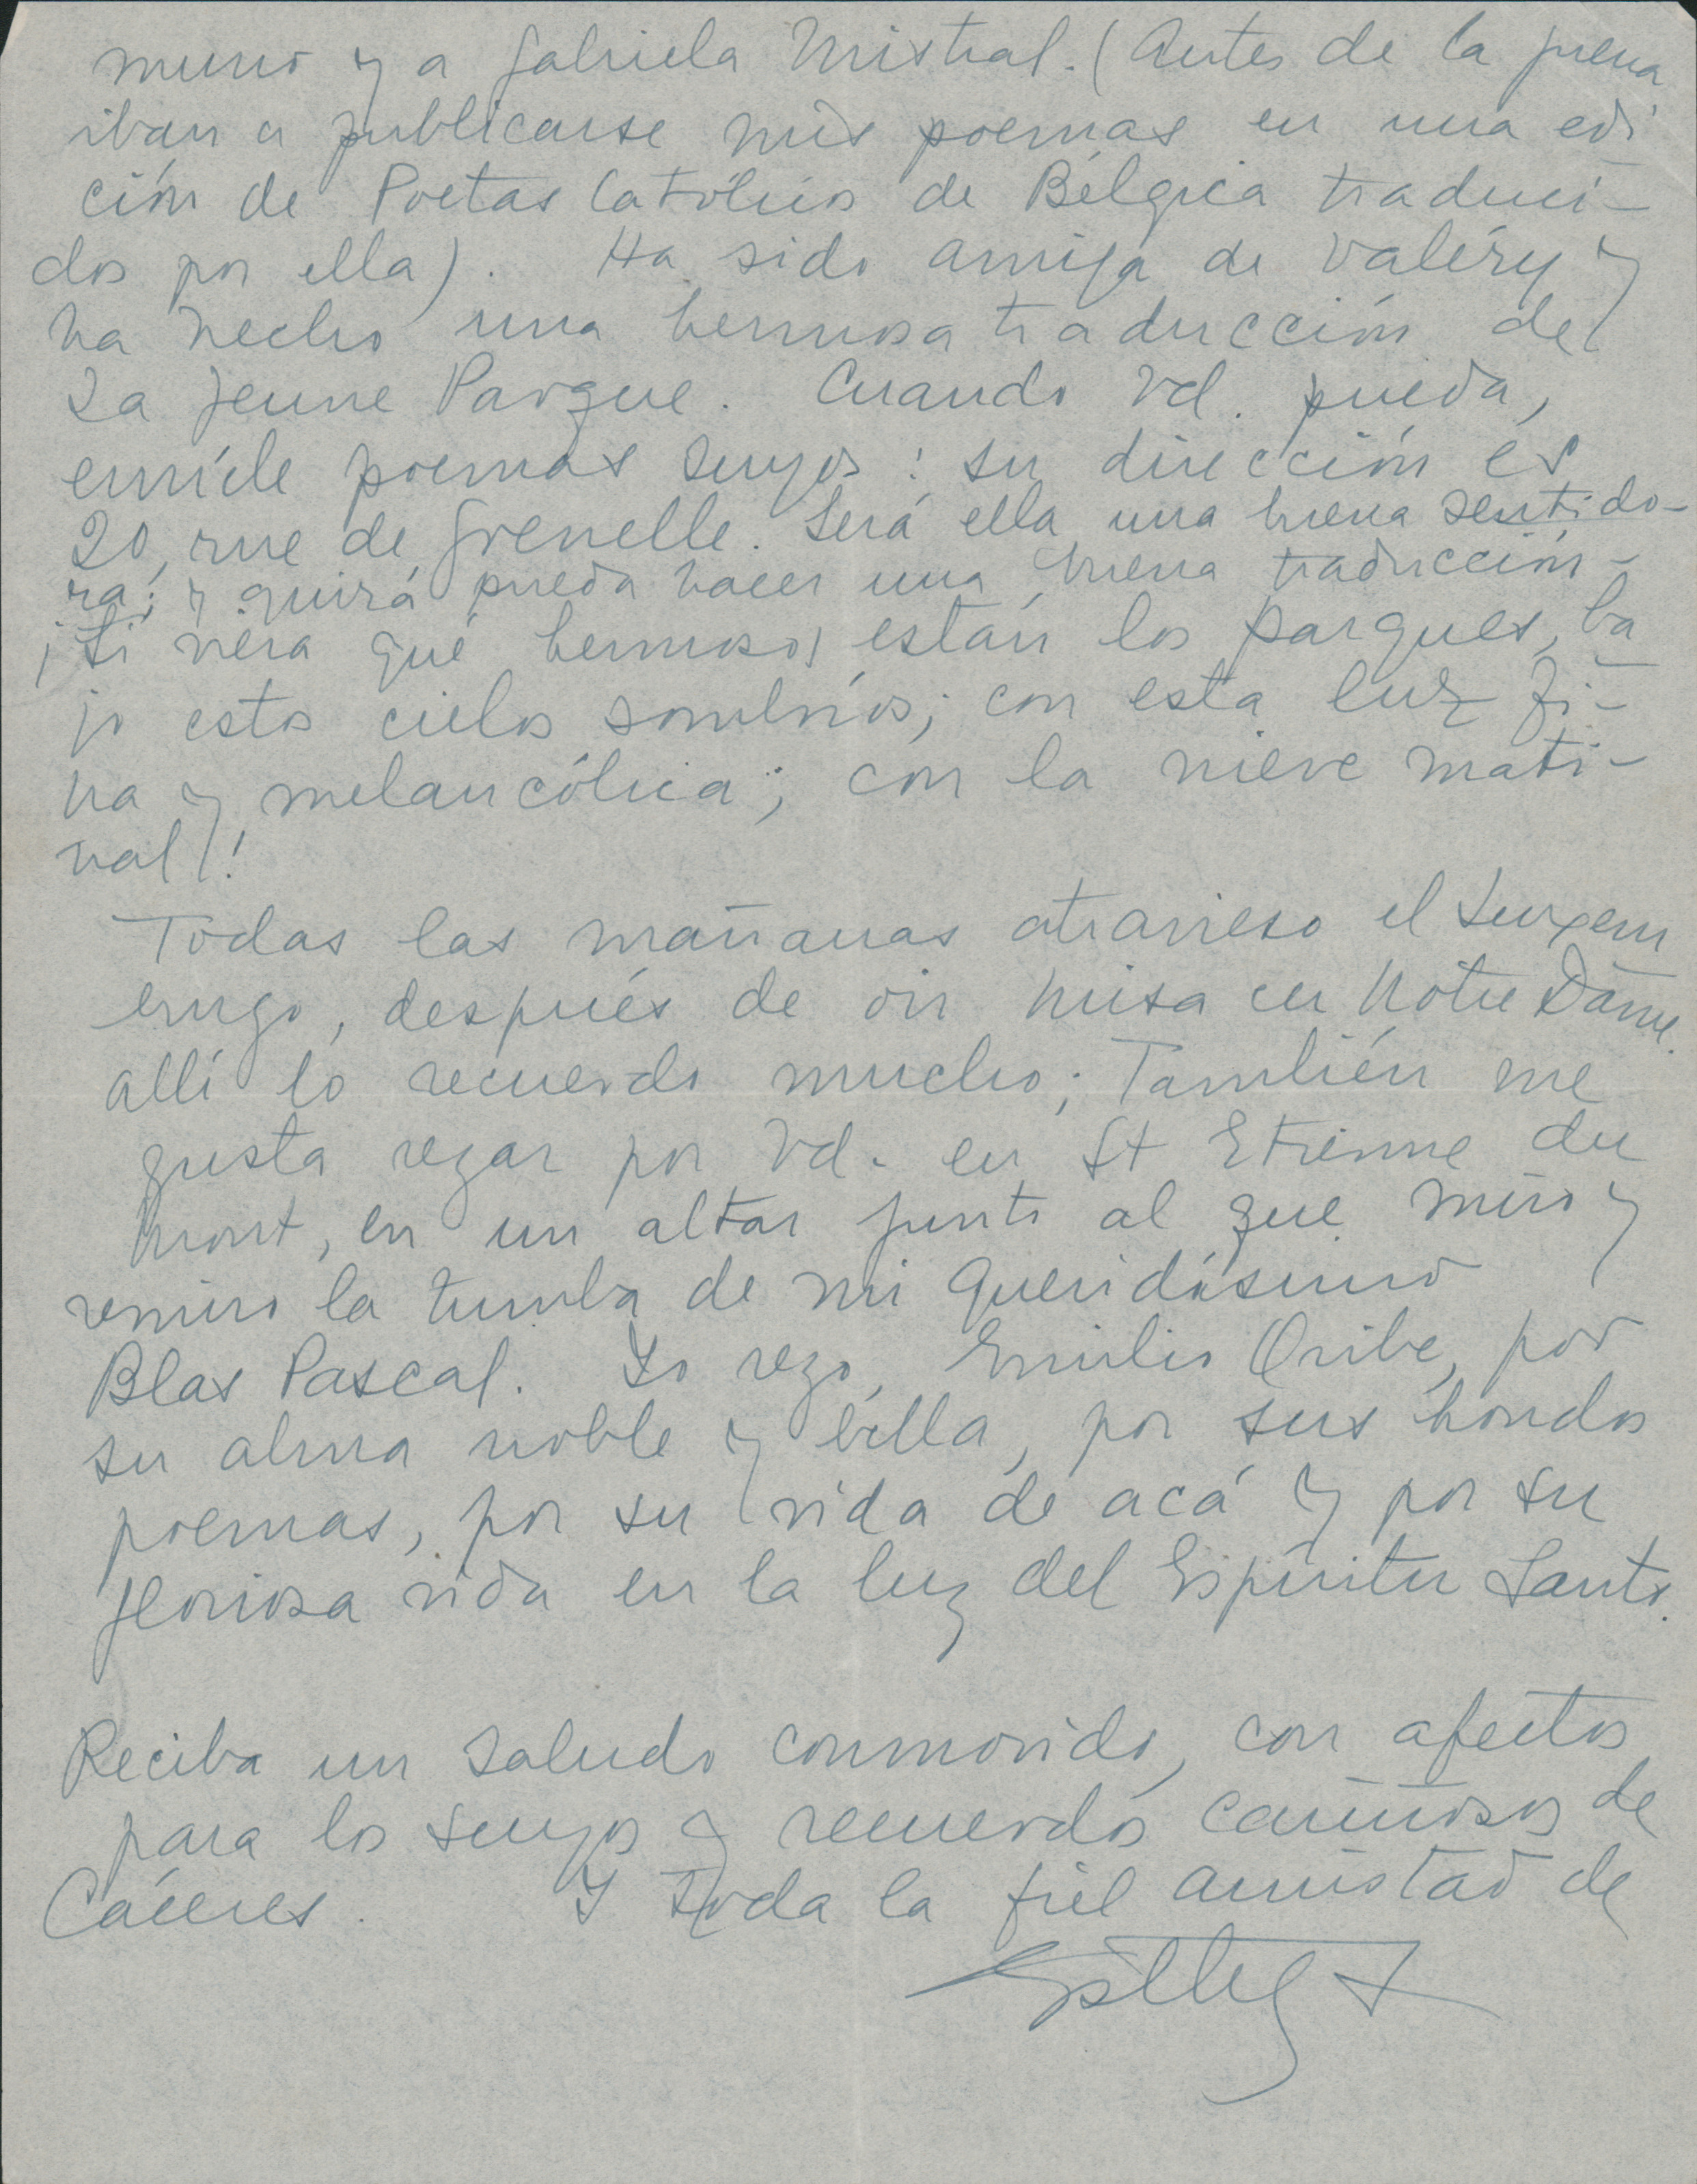 muno y a Gabriela Mistral. (Antes de la guerra
iban a publicarse mis poemas en una edi
ción de Poetas Católicos de Bélgica traduci-
dos por ella). Ha sido amiga de Valéry y
ha hecho una hermosa traducción de
La Jeune Parque. Cuando Vd. pueda,
envíele poemas suyos: su dirección es
20, rue de Grenelle. Será ella una buena sentido-
ra; y quizá pueda hacer una buena traducción-
¡Si viera qué hermosos están los parques, ba
jo estos cielos sombríos; con esta luz fi-
na y melancólica; con la nieve mati-
nal!
Todas las mañanas atravieso el Luxem
burgo, después de oir misa en Notre Dame.
Allí lo recuerdo mucho; También me
gusta rezar por Vd. en St Etienne du
Mont, en un altar junto al que miro y
remiro la tumba de mi queridísimo
Blas Pascal. Yo rezo, Emilio Oribe, por
su alma noble y bella, por sus hondos
poemas, por su vida de acá y por su
gloriosa vida en la luz del Espíritu Santo.
Reciba un saludo conmovido, con afectos
para los suyos y recuerdos cariñosos de
Cáceres. Y toda la fiel amistad de